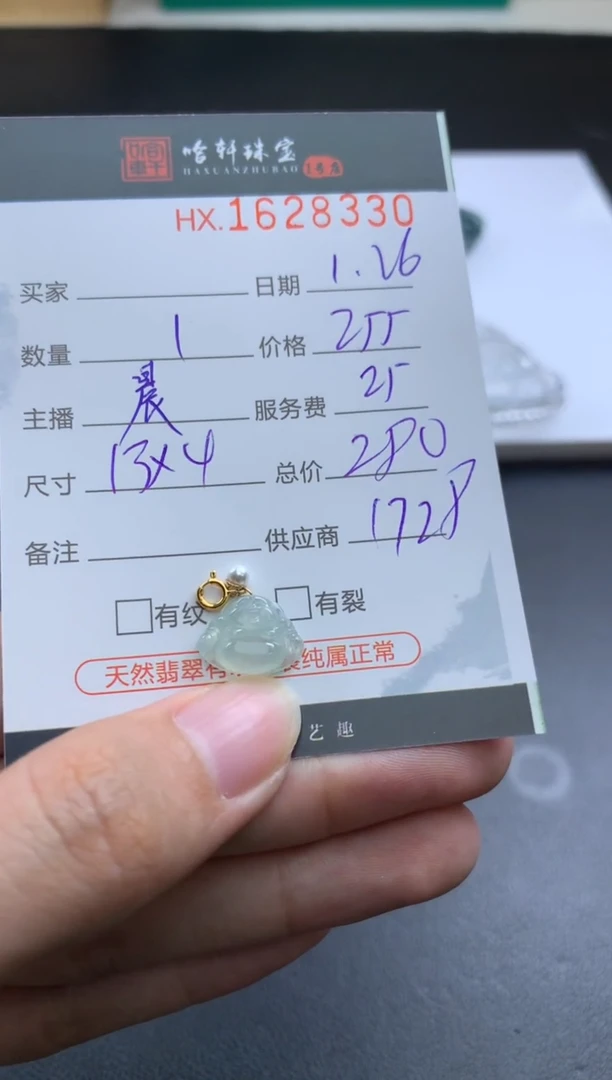 哈轩珠宝
HAXUANZHUBAO 1号店
HX.1628330
买家 日期 1.26
数量 1 价格 255
主播 晨 服务费 25
尺寸 13x4 总价 280
备注 供应商 1728
有纹 有裂
天然翡翠有 裂纯属正常
艺趣